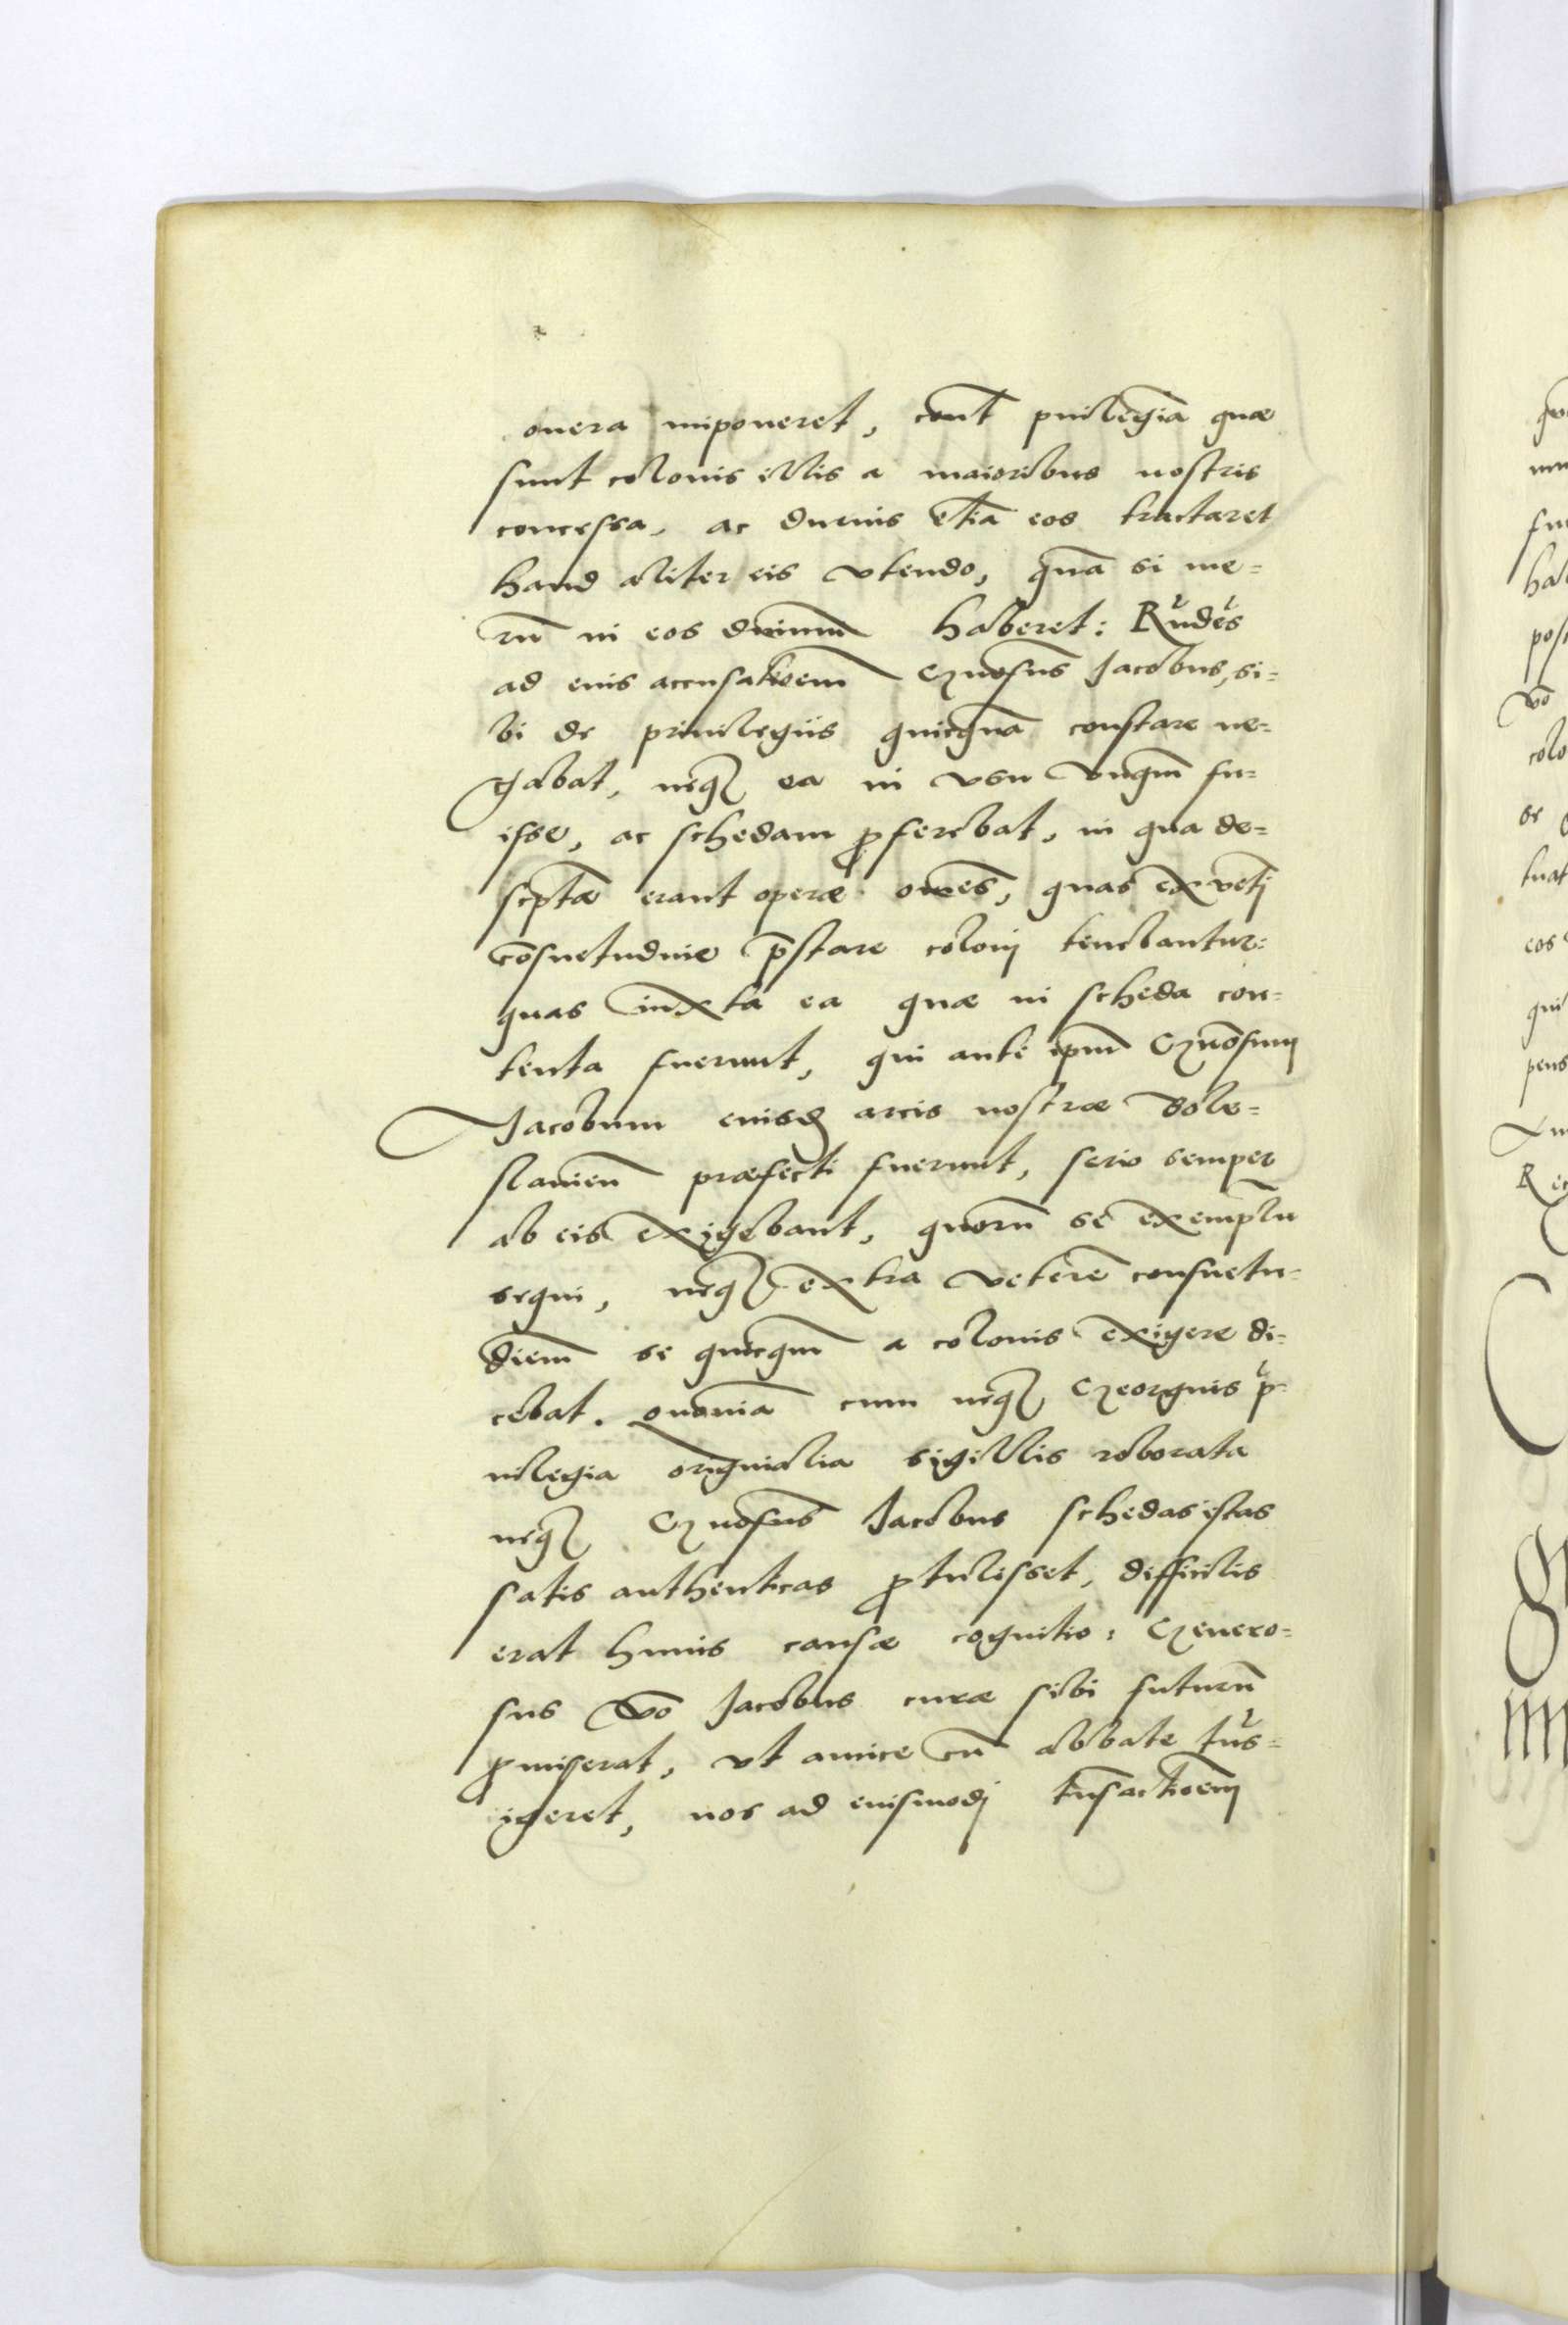 onera imponeret, cont̄ pͥuilegia quæ
sunt colonis illis a maioribus nostris
concessa, ac durius etiā eos tractaret
haud aliter eis vtendo, quā si me=
rū in eos dñium haberet: Rn̄dēs
ad eius accusatioem Gn̄osus Jacobus, si=
bi de priuilegiis quicquā constare ne=
gabat, neq₃ ea in vsu vnqm̄ fu=
isse, ac schedam ꝓferebat, in qua de=
scptæ erant operæ om̄es, quas ex vetj
cōsuetudine p̄stare colonj tenebantur:
quas iuxta ea quæ in scheda con=
tenta fuerunt, qui ante ipm̄ Gn̄osum
Jacobum eiusdē arcis nostræ Bole=
slauien̄ præfecti fuerunt, serio semper
ab eis exigebant, quorū se exemplū
sequi, neq₃ extra veterē consuetu=
diem̄ se quicqm̄ a colonis exigere di=
cebat. Quoniā cum neq₃ Georgius pͥ=
uilegia originalia sigillis roborata
neq₃ Gn̄osus Jacobus schedas istas
satis authenticas ꝓtulisset, difficilis
erat huius causæ cognitio: Genero=
sus vō Jacobus curæ sibi futurū
ꝓmiserat, vt amice cū abbate tn̄s=
igeret, nos ad eiusmodj tn̄sactioem̄